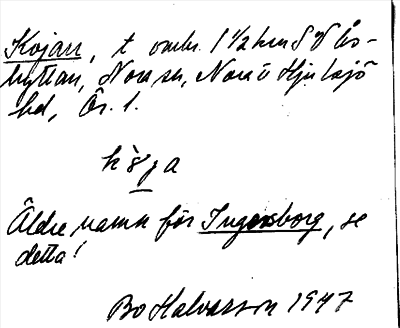 Kojan, t. omkr. 1 1/2 km S V Ås-
hyttan, Nora sn, Nora o Hjulsjö
hd, Ör. l.
kò̀ja
Äldre namn för Ingersborg, se
detta!
Bo Halvarson 1947